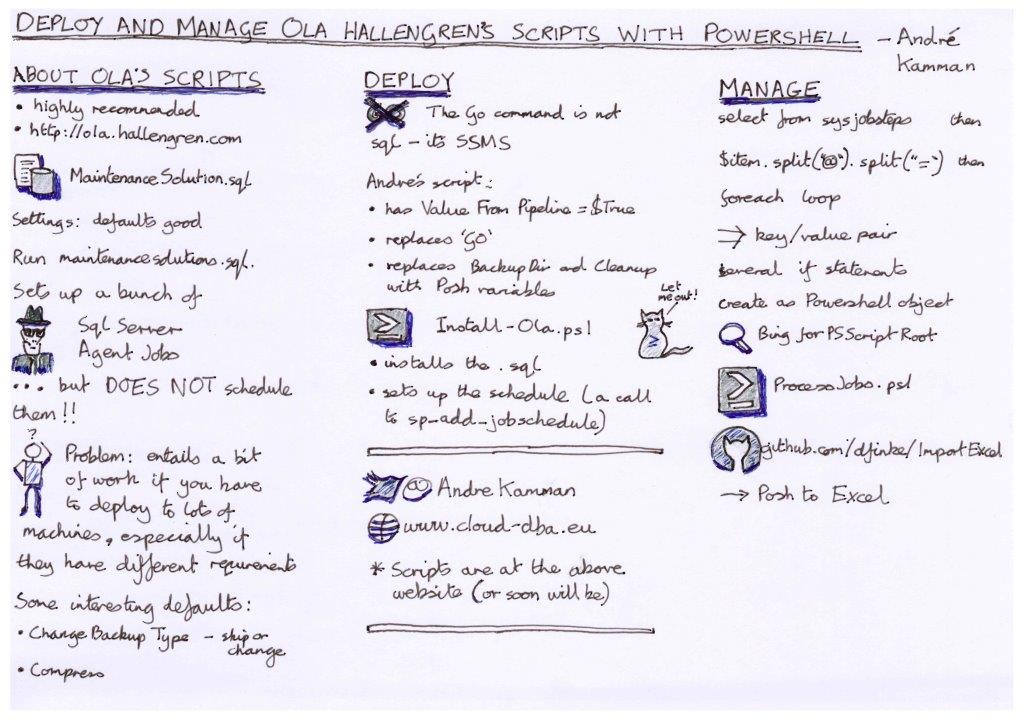 DEPLOY AND MANAGE OLA HALLENGREN'S SCRIPTS WITH POWERSHELL - André
Kamman
ABOUT OLA'S SCRIPTS
• highly recommended
• http://ola.hallengren.com
MaintenanceSolution.sql
Settings: defaults good
Run maintenancesolutions.sql.
Sets up a bunch of
Sql Server
Agent Jobs
... but DOES NOT schedule
them!!
?
Problem: entails a bit
of work if you have
to deploy to lots of
machines, especially if
they have different requirements
Some interesting defaults:
• Change Backup Type - skip or
change
• Compress
DEPLOY
The Go command is not
sql - its SSMS
Andre's script:
• has Value From Pipeline = $True
• replaces 'GO'
• replaces BackupDir and Cleanup
with Posh variables
Let
me out!
Install-Ola.ps1
• installs the .sql
• sets up the schedule (a call
to sp-add-jobschedule)
Andre Kamman
www.cloud-dba.eu
* Scripts are at the above
website (or soon will be)
MANAGE
select from sysjobsteps then
$item.split("@").split("=") then
foreach loop
⇒ key/value pair
several if statements
create as Powershell object
Bing for PSScriptRoot
ProcessJobs.ps1
github.com/dfinke/ImportExcel
→ Posh to Excel